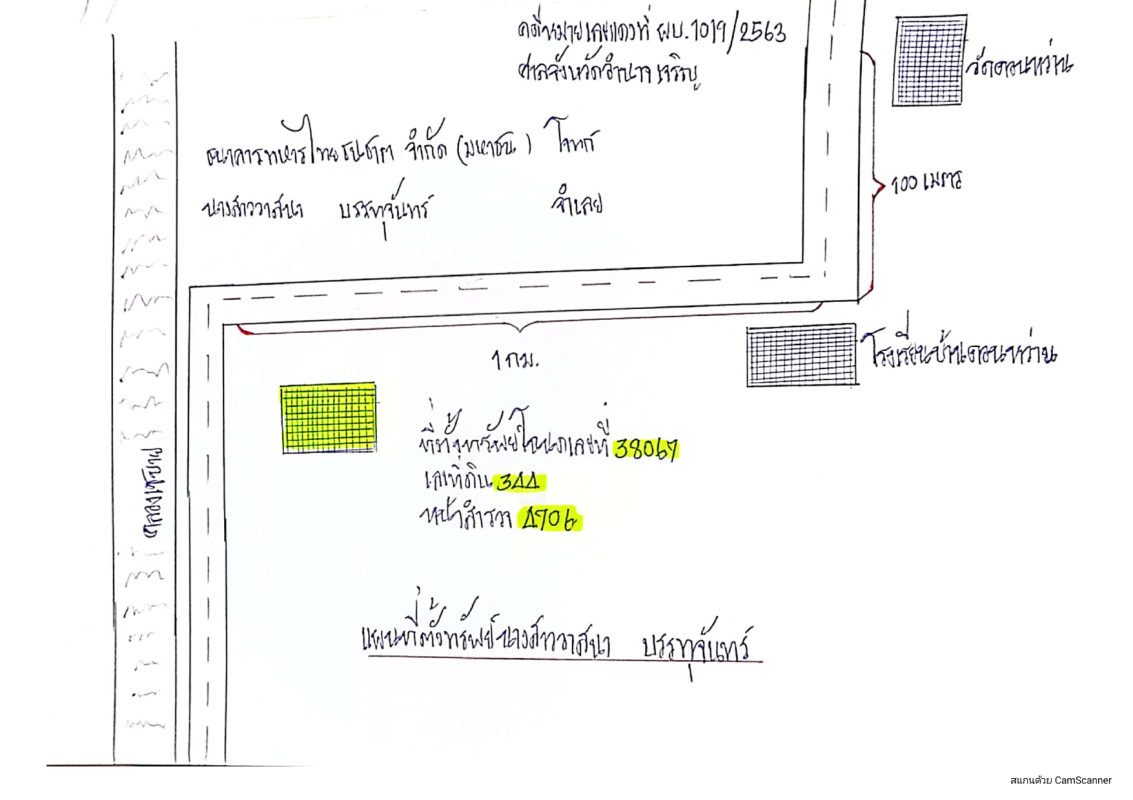 คดีหมายเลขแดงที่ ผบ.1019/2563
ศาลจังหวัดอำนาจเจริญ
วัดดอนหว่าน
ธนาคารทหารไทยธนชาต จำกัด (มหาชน) โจทก์
100 เมตร
นางสาววาสนา บรรทุจันทร์ จำเลย
1 กม.
โรงเรียนบ้านดอนหว่าน
ที่ตั้งทรัพย์โฉนดเลขที่ 38067
เลขที่ดิน 344
หน้าสำรวจ 4706
แผนที่ตั้งทรัพย์นางสาววาสนา บรรทุจันทร์
สแกนด้วย CamScanner